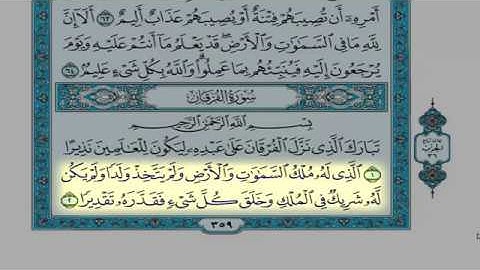 أَمْرِهِۦٓ أَن تُصِيبَهُمْ فِتْنَةٌ أَوْ يُصِيبَهُمْ عَذَابٌ أَلِيمٌ ٦٣ أَلَآ إِنَّ
لِلَّهِ مَا فِي السَّمَٰوَٰتِ وَالْأَرْضِ قَدْ يَعْلَمُ مَآ أَنتُمْ عَلَيْهِ وَيَوْمَ
يُرْجَعُونَ إِلَيْهِ فَيُنَبِّئُهُم بِمَا عَمِلُوا۟ وَاللَّهُ بِكُلِّ شَيْءٍ عَلِيمٌ ٦٤
سُورَةُ الْفُرْقَانِ
بِسْمِ اللَّهِ الرَّحْمَٰنِ الرَّحِيمِ
تَبَارَكَ الَّذِي نَزَّلَ الْفُرْقَانَ عَلَىٰ عَبْدِهِۦ لِيَكُونَ لِلْعَٰلَمِينَ نَذِيرًا
١ الَّذِي لَهُۥ مُلْكُ السَّمَٰوَٰتِ وَالْأَرْضِ وَلَمْ يَتَّخِذْ وَلَدًا وَلَمْ يَكُن
لَّهُۥ شَرِيكٌ فِي الْمُلْكِ وَخَلَقَ كُلَّ شَيْءٍ فَقَدَّرَهُۥ تَقْدِيرًا ٢
٣٥٩
الحزب
٣٦